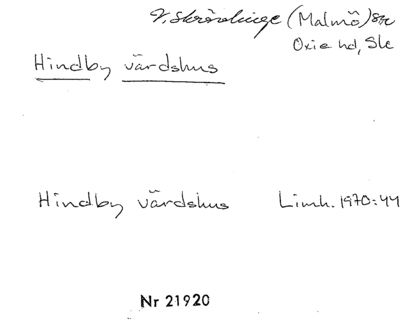 V. Skrävlinge (Malmö) stn
Oxie hd, Sk
Hindby värdshus
Hindby värdshus Limh. 1970:44
Nr 21920